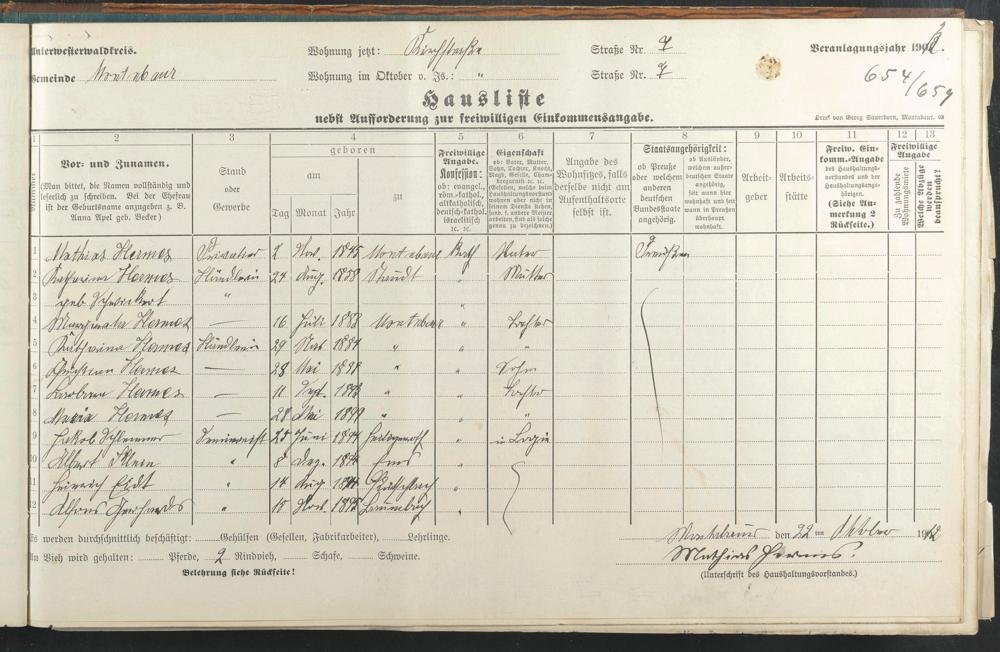 Unterwesterwaldkreis.
Wohnung jetzt: Kirchstraße Straße Nr. 7
Veranlagungsjahr 191
Gemeinde Montabaur
Wohnung im Oktober v. Js.: " Straße Nr. 7
654/659
Hausliste
nebst Aufforderung zur freiwilligen Einkommensangabe.
Druck von Georg Sauerborn, Montabaur.
1 2 3 4 5 6 7 8 9 10 11 12 13
Nummer
Vor- und Zunamen.
(Man bittet, die Namen vollständig und
leserlich zu schreiben. Bei der Ehefrau
ist der Geburtsname anzugeben z. B.
Anna Apel geb. Becker)
Stand
oder
Gewerbe
geboren
am
Tag Monat Jahr
zu
Freiwillige
Angabe.
Konfession:
ob: evangel.,
röm.-kathol.,
altkatholisch,
deutsch-kathol.
israelitisch
ec. ec.
Eigenschaft
ob: Vater, Mutter,
Sohn, Tochter, Knecht,
Magd, Geselle, Cham-
bregarnist ec. ec.
(Gesellen, welche beim
Haushaltungsvorstand
wohnen aber nicht in
seinen Diensten stehen,
sind f. andere Meister
arbeiten, sind als solche
genau zu bezeichnen.)
Angabe des
Wohnsitzes, falls
derselbe nicht am
Aufenthaltsorte
selbst ist.
Staatsangehörigkeit:
ob Preuße
oder welchem
anderen
deutschen
Bundesstaate
angehörig.
ob Ausländer,
welchem außer-
deutschen Staate
angehörig,
seit wann hier
wohnhaft und seit
wann in Preußen
überhaupt
wohnhaft.
Arbeit-
geber
Arbeits-
stätte
Freiw. Ein-
komm.-Angabe
des Haushaltungs-
vorstandes und der
Haushaltungsange-
hörigen.
(Siehe An-
merkung 2
Rückseite.)
Freiwillige
Angabe
Zu zahlende
Wohnungsmiete
Welche Abzüge
werden
beansprucht?
1 Mathias Hermes Privatier 2 Nov. 1845 Montabaur Kath Vater Preußen
2 Katharina Hermes Händlerin 24 Aug. 1858 Staudt " Mutter
3 geb Schwickert " "
4 Margareta Hermes — 16 Juli 1883 Montabaur " Tochter
5 Katharina Hermes Händlerin 29 1884 " " "
6 Hermes — 28 Mai " " Sohn
7 Barbara Hermes — 11 Sept. 1893 " " Tochter
8 Maria Hermes — 28 Mai 1899 " " "
9 Jakob Seminarist 25 Juni " in Logie
10 Albert Klein " 8 Dez. Ems "
11 Heinrich Eidt " 14 Aug "
12 Alfons Gerhards " 15 "
Es werden durchschnittlich beschäftigt: Gehülfen (Gesellen, Fabrikarbeiter), Lehrlinge.
Montabaur den 22 ten Oktober 1912
An Vieh wird gehalten: Pferde, 2 Rindvieh, Schafe, Schweine.
Mathias Hermes.
Belehrung siehe Rückseite!
(Unterschrift des Haushaltungsvorstandes.)